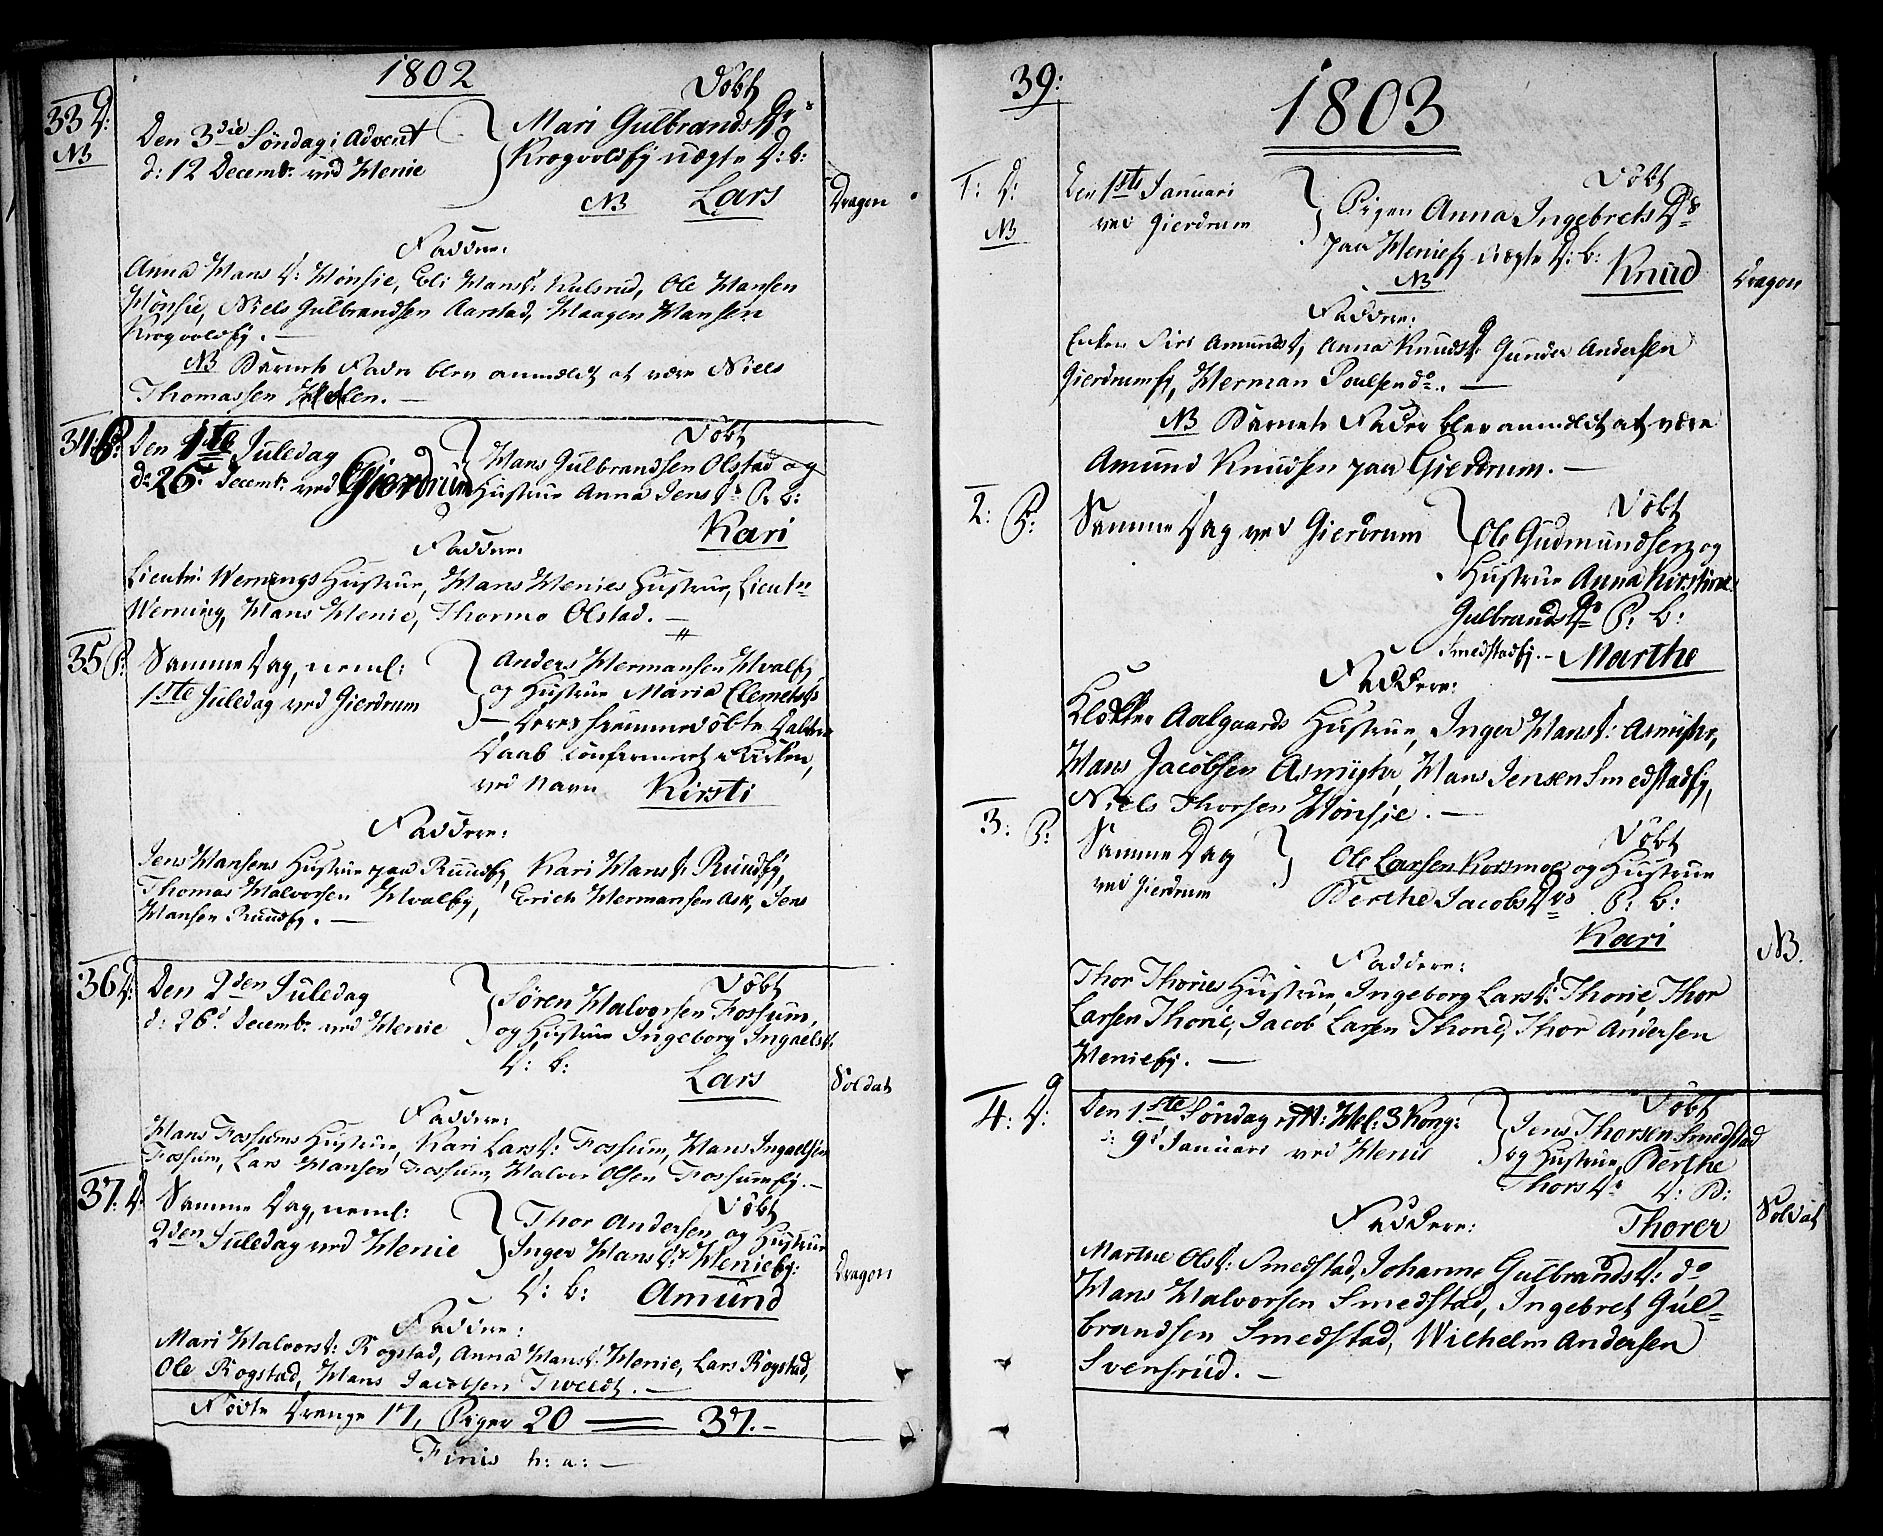 1802
33 D:
NB
Den 3die Söndag i Advent
d: 12 Decembr ved Henie
Döbt
Mari Gulbrands Dr:
Krogvoldeje uægte D: b:
NB Lars
Dragon
Faddere:
Anna Hans D: Hönsie, Eli Hans D: Kulsrud, Ole Hansen
Hönsie, Niels Gulbrandsen Aarstad, Haagen Hansen
Krogvoldej. —
NB Barnets Fader blev anmeldt at være Niels
Thomassen
34 P:
Den 1ste Juledag
d: 25 Decembr ved Gierdrum
Döbt
Hans Gulbrandsen Olstad og
Hustrue Anna Jens Dr P: b:
Kari
Faddere
Lieutn: Wernings Hustrue, Hans Henies Hustrue, Lieutn
Werning, Hans Henie, Thormo Olstad. —
35 P:
Samme Dag, neml:
1ste Juledag ved Gierdrum
Anders Hermansen Hvalej
og Hustrue Maria Clemets Ds
— Deres hiemmedöbte
Daab confirmeret i Kirken,
ved Navn Kirsti
Faddere:
Jens Hansens Hustrue paa Ruudej, Kari Hans D: Ruudej,
Thomas Halvorsen Hvalej, Erich Hermansen Ask, Jens
Hansen Ruudej. —
36 D:
Den 2den Juledag
d: 26 Decembr ved Henie
Döbt
Sören Halvorsen Fossum,
og Hustrue Ingeborg Ingaels D.
D: b:
Lars
Soldat
Faddere:
Hans Fossums Hustrue, Kari Lars D: Fossum, Hans Ingaelsen
Fossum, Lars Hansen Fossum, Halvor Olsen Fossumej. —
37: D:
Samme Dag, neml:
2den Juledag ved Henie
Döbt
Thor Andersen og Hustrue
Inger Hans Dr Henieej:
D: b: Amund
Dragon
Faddere:
Mari Halvors D: Rogstad, Anna Hans D: Henie, Lars Rogstad,
Ole Rogstad, Hans Jacobsen Tweedt. —
Födte Drenge 17, Piger 20 — 37. —
Finis h: a: —
39:
1803
1: D:
NB
Den 1ste Januari
ved Gierdrum
Döbt
Pigen Anna Ingebrets Dr
paa Henieej uægte D: b:
NB Knud
Dragon
Faddere:
Enken Siri Amunds D, Anna Knuds D: Gunder Andersen
Gierdrumej, Herman Poulsen do. —
NB Barnets Fader blev anmeldt at være
Amund Knudsen paa Gierdrum. —
2: P:
Samme Dag ved Gierdrum
Döbt
Ole Gudmundsen og
Hustrue Anna Kirstine
Gulbrands Dr P: b:
Smedstadej. — Marthe
Faddere:
Klokker Aalgaards Hustrue, Inger Hans D: Asmyhr,
Hans Jacobsen Asmyhr, Hans Jensen Smedstadej,
Niels Thorsen Hönsie. —
3: P:
Samme Dag
ved Gierdrum
Döbt
Ole Larsen Korsmoe og Hustrue
Berthe Jacobs Drs P: b:
Kari
NB.
Faddere:
Thor Thories Hustrue, Ingeborg Lars D: Thorie, Thor
Larsen Thorie, Jacob Larsen Thorie, Thor Andersen
Henieej. —
4: D:
Den 1ste Söndag e: Hel: 3 Kong:
d: 9: Januari ved Henie
Döbt
Jens Thorsen Smedstad
og Hustrue Berthe
Thors Dr D: B:
Thorer
Soldat
Faddere:
Marthe Ols D: Smedstad, Johanne Gulbrands D: do
Hans Halvorsen Smedstad, Ingebret Gul=
brandsen Smedstad, Wilhelm Andersen
Svensrud. —